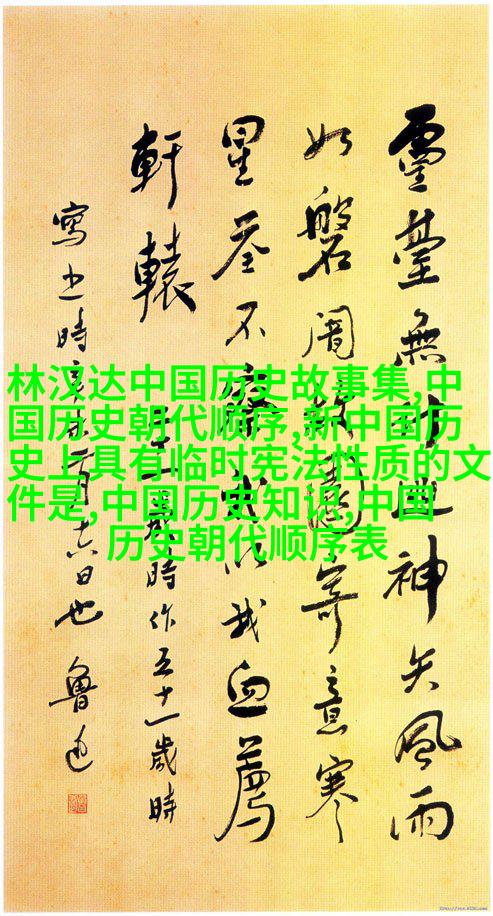 林汉达中国历史故事集,中
国历史朝代顺序,新中国历
史上具有临时宪法性质的文
件是,中国历史知识,中国
历史朝代顺序表
靈臺無計逃神矢風雨
如磐闇故園寄意寒
星荃不察我以我血薦
軒轅
二十一歲時作五十一歲時
寫之時辛未二月十六日也 魯迅